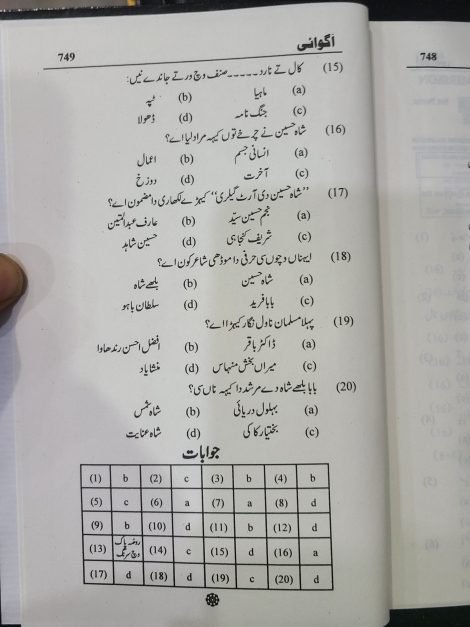 749 اگوائی
748
(15) کال تے نارد ۔۔۔۔۔ صنف وچ ورتے جاندے نیں:
(a) ماہیا (b) ٹپہ
(c) جنگ نامہ (d) ڈھولا
(16) شاہ حسین نے چرخے توں کیہہ مراد لیا اے؟
(a) انسانی جسم (b) اعمال
(c) آخرت (d) دوزخ
(17) ’’شاہ حسین دی آرٹ گیلری‘‘ کیہڑے لکھاری دا مضمون اے؟
(a) نجم حسین سیّد (b) عارف عبدالمتین
(c) شریف کنجاہی (d) حسین شاہد
(18) ایہناں وچوں سی حرفی دا موڈھی شاعر کون اے؟
(a) شاہ حسین (b) بلھے شاہ
(c) بابا فرید (d) سلطان باہو
(19) پہلا مسلمان ناول نگار کیہڑا اے؟
(a) ڈاکٹر باقر (b) افضل احسن رندھاوا
(c) میراں بخش منہاس (d) منشا یاد
(20) بابا بلھے شاہ دے مرشد دا کیہہ ناں سی؟
(a) بہلول دریائی (b) شاہ شمس
(c) بختیار کاکی (d) شاہ عنایت
جوابات
(1) b (2) c (3) b (4) b
(5) c (6) a (7) a (8) d
(9) b (10) d (11) b (12) d
(13) روضہ پاک وچ سرنگ (14) c (15) d (16) a
(17) d (18) d (19) c (20) d